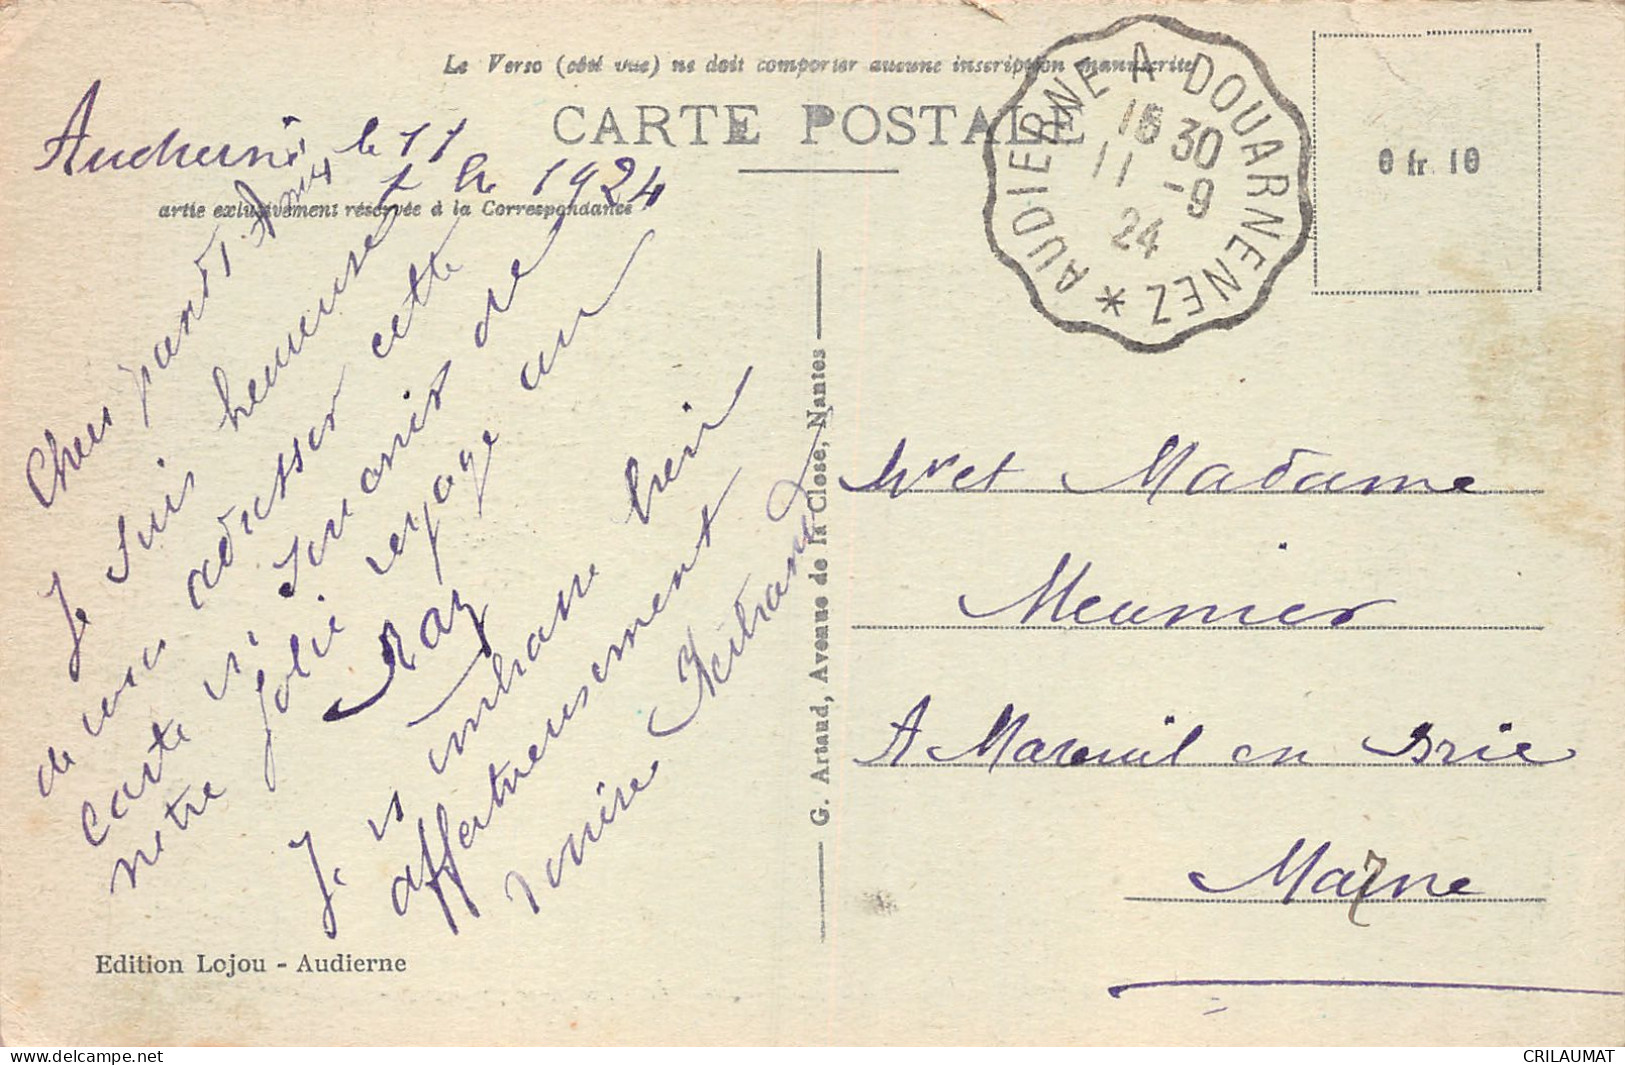 Le Verso (côté vue) ne doit comporter aucune inscription manuscrite
CARTE POSTALE
artie exclusivement réservée à la Correspondance
AUDIERNE A DOUARNENEZ *
15 30
11 -9
24
0 fr. 10
Audierne le 11
1924
Chers Grands Amis
Je suis heureuse
de vous adresser cette
carte en souvenir de
notre jolie voyage au
Raz
Je vs embrasse bien
affectueusement
Louise Bertrand
G. Artaud, Avenue de la Close, Nantes
Mr et Madame
Meunier
A Mareuil en Brie
Marne
Edition Lojou - Audierne
delcampe.net
CRILAUMAT